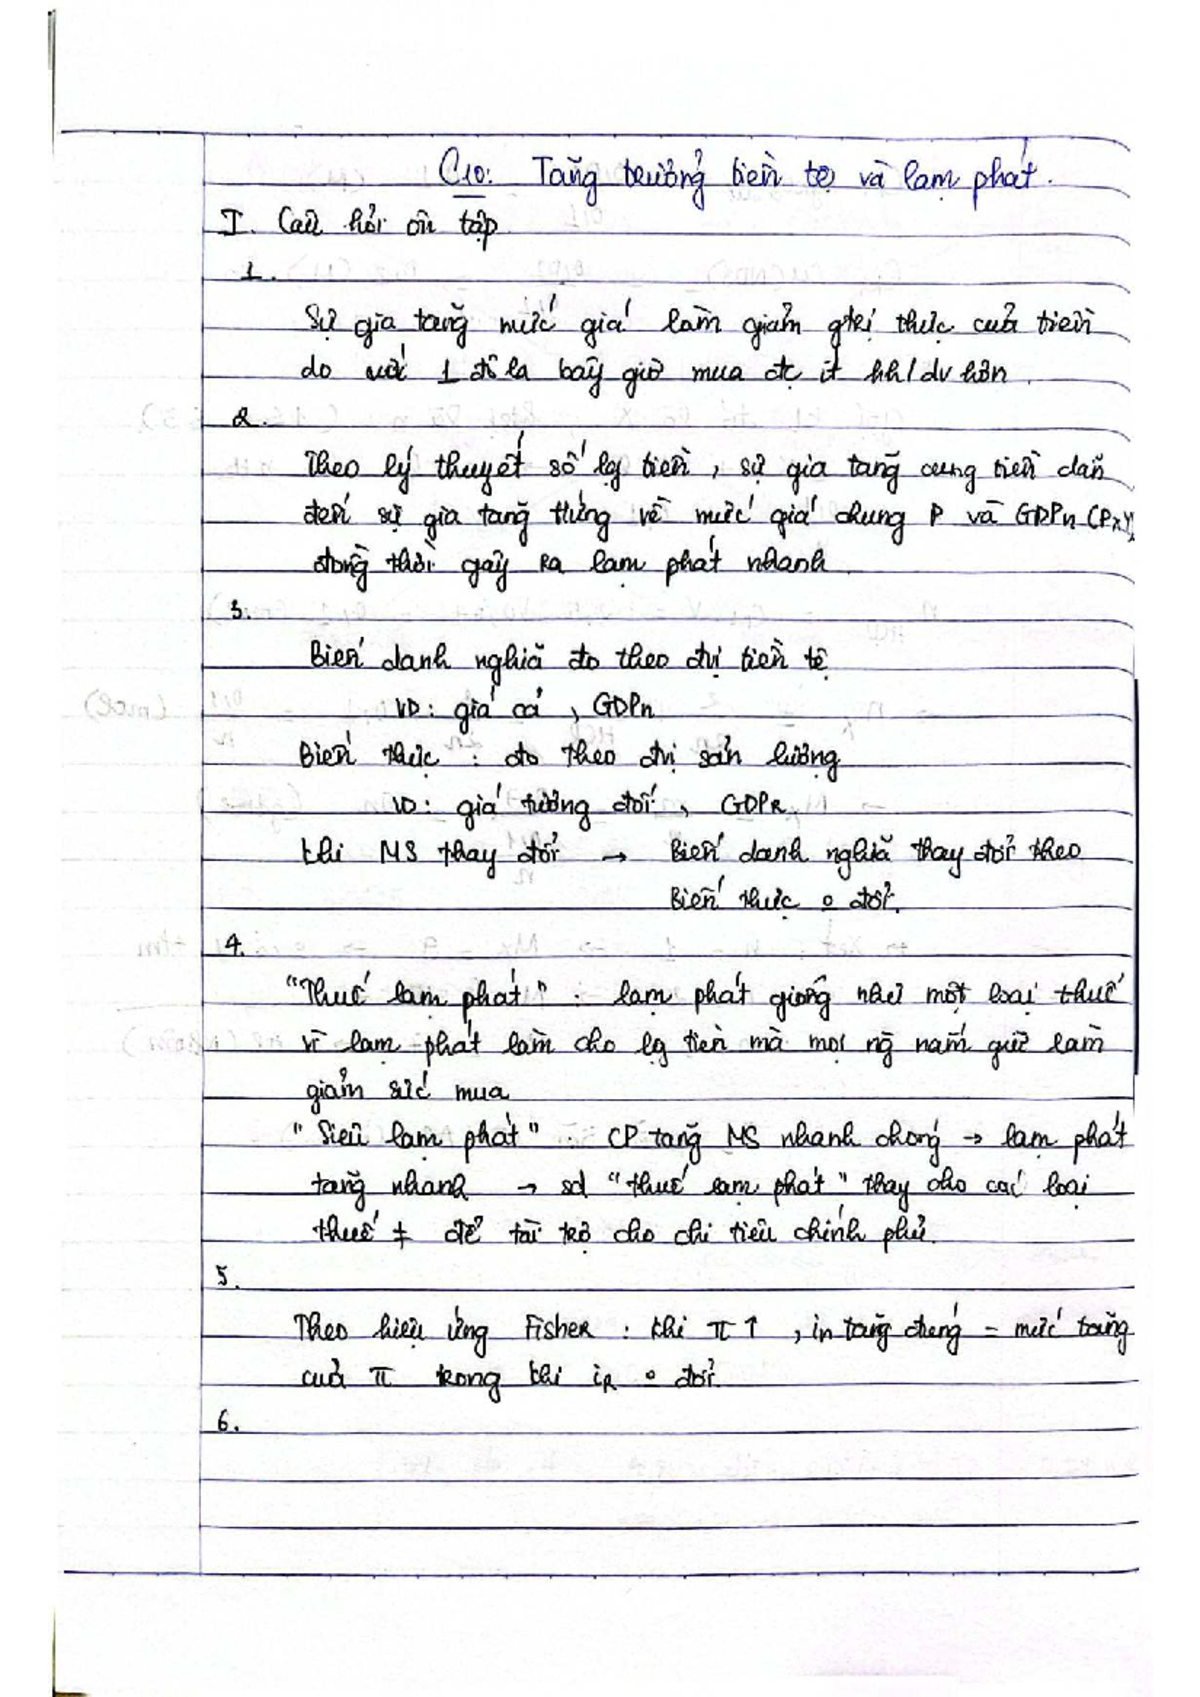 C10: Tăng trưởng tiền tệ và lạm phát.
I. Câu hỏi ôn tập
1.
Sự gia tăng mức giá làm giảm gtrị thực của tiền
do với 1 đô la bây giờ mua đc ít hh/dv hơn
2.
Theo lý thuyết số lg tiền, sự gia tăng cung tiền dẫn
đến sự gia tăng tương về mức giá chung P và GDPn (PxY)
đồng thời gây ra lạm phát nhanh
3.
Biến danh nghĩa đo theo đvị tiền tệ
VD: giá cả, GDPn
Biến thực: đo theo đvị sản lượng
VD: giá tương đối, GDPR
Khi MS thay đổi → Biến danh nghĩa thay đổi theo
Biến thực o đổi.
4.
"Thuế lạm phát": lạm phát giống như một loại thuế
vì lạm phát làm cho lg tiền mà mọi ng nắm giữ làm
giảm sức mua
"Siêu lạm phát" CP tăng MS nhanh chóng → lạm phát
tăng nhanh → sd "thuế lạm phát" thay cho các loại
thuế ≠ để tài trợ cho chi tiêu chính phủ.
5.
Theo hiệu ứng Fisher: khi π↑, in tăng đúng = mức tăng
của π trong khi iR o đổi
6.